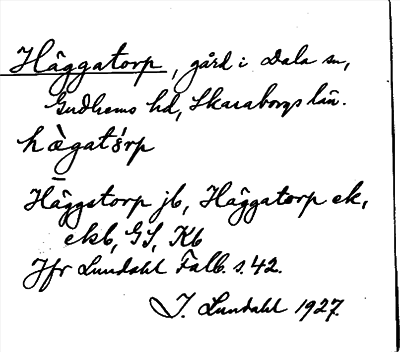 Häggatorp, gård i Dala sn,
Gudhems hd, Skaraborgs län.
hàgatórp
Häggatorp jb, Häggatorp ek,
ekb, GS, Kb
Jfr Lundahl Falb. s. 42.
I. Lundahl 1927.